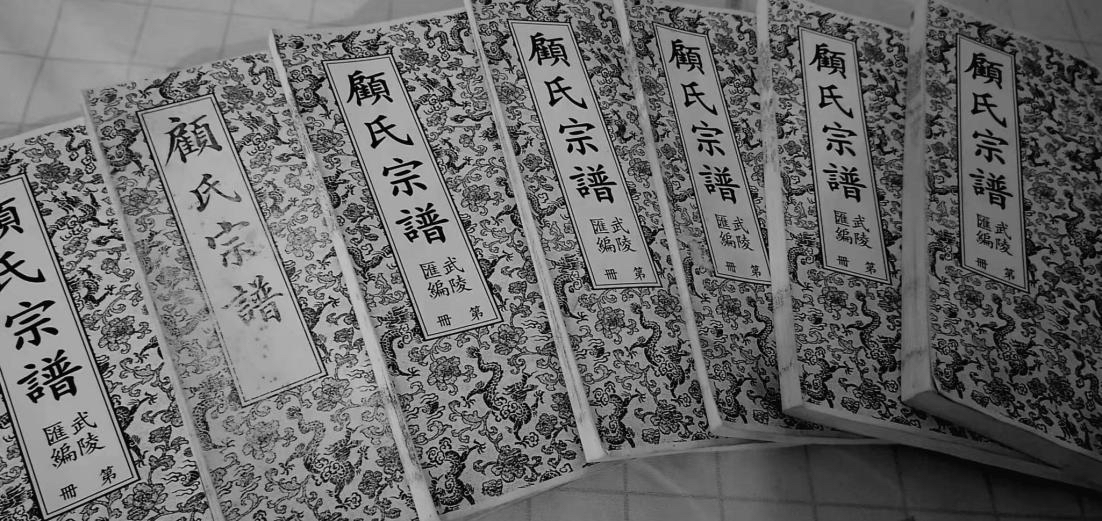 顧氏宗譜
武陵
匯編
第 冊
顧氏宗譜
顧氏宗譜
武陵
匯編
第 冊
顧氏宗譜
武陵
匯編
第 冊
顧氏宗譜
武陵
匯編
第 冊
顧氏宗譜
武陵
匯編
第 冊
顧氏宗譜
武陵
匯編
第 冊